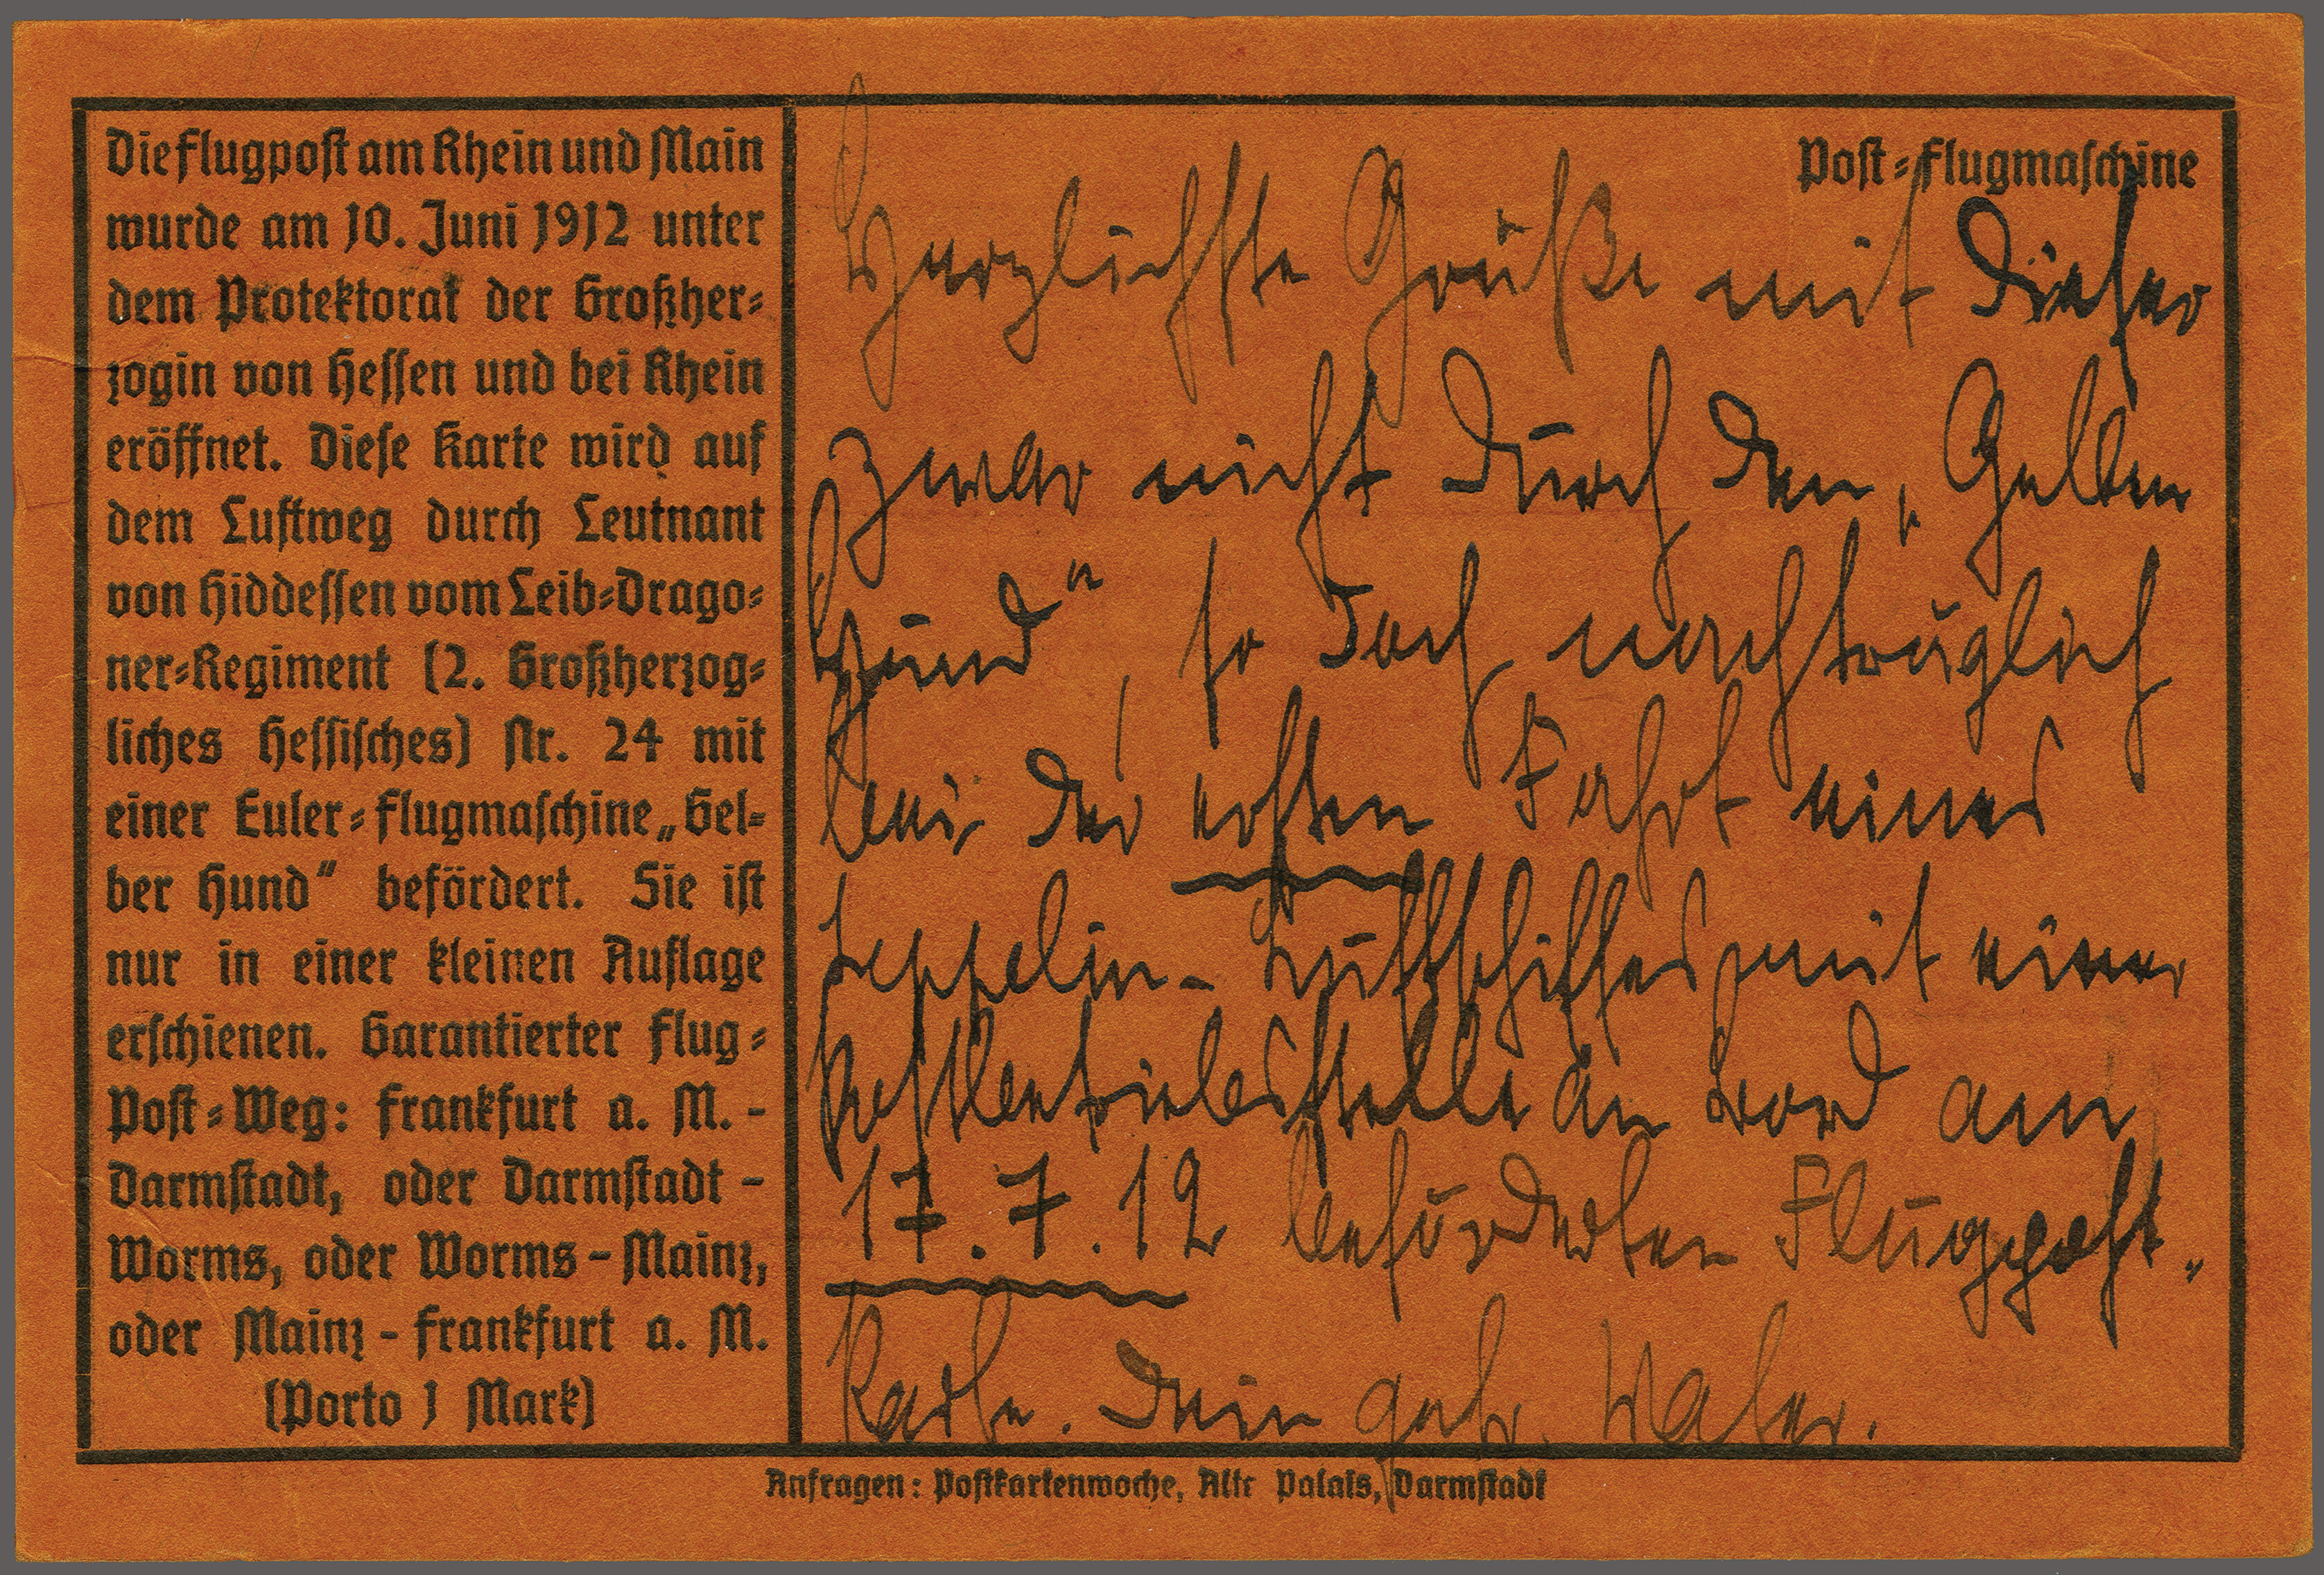 Die Flugpost am Rhein und Main
wurde am 10. Juni 1912 unter
dem Protektorat der Großher-
zogin von Hessen und bei Rhein
eröffnet. Diese Karte wird auf
dem Luftweg durch Leutnant
von Hiddessen vom Leib-Drago-
ner-Regiment (2. Großherzog-
liches Hessisches) Nr. 24 mit
einer Euler-Flugmaschine „Gel-
ber Hund“ befördert. Sie ist
nur in einer kleinen Auflage
erschienen. Garantierter Flug-
Post-Weg: Frankfurt a. M. -
Darmstadt, oder Darmstadt -
Worms, oder Worms - Mainz,
oder Mainz - Frankfurt a. M.
(Porto 1 Mark)
Post-Flugmaschine
Herzlichste Grüße mit dieser
zwar nicht durch den „Gelben
Hund“, so doch nachträglich
bei der ersten Fahrt eines
Zeppelin-Luftschiffes mit einer
Postbetriebsstelle an Bord am
17.7.12 beförderten Flugpost-
Karte. Dein getr. Vater.
Anfragen: Postkartenwoche, Altes Palais, Darmstadt